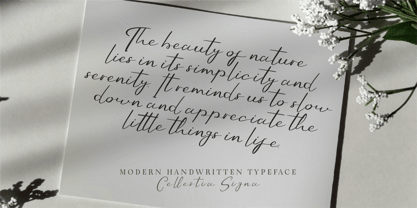 The beauty of nature
lies in its simplicity and
serenity. It reminds us to slow
down and appreciate the
little things in life.
MODERN HANDWRITTEN TYPEFACE
Cellestia Signa